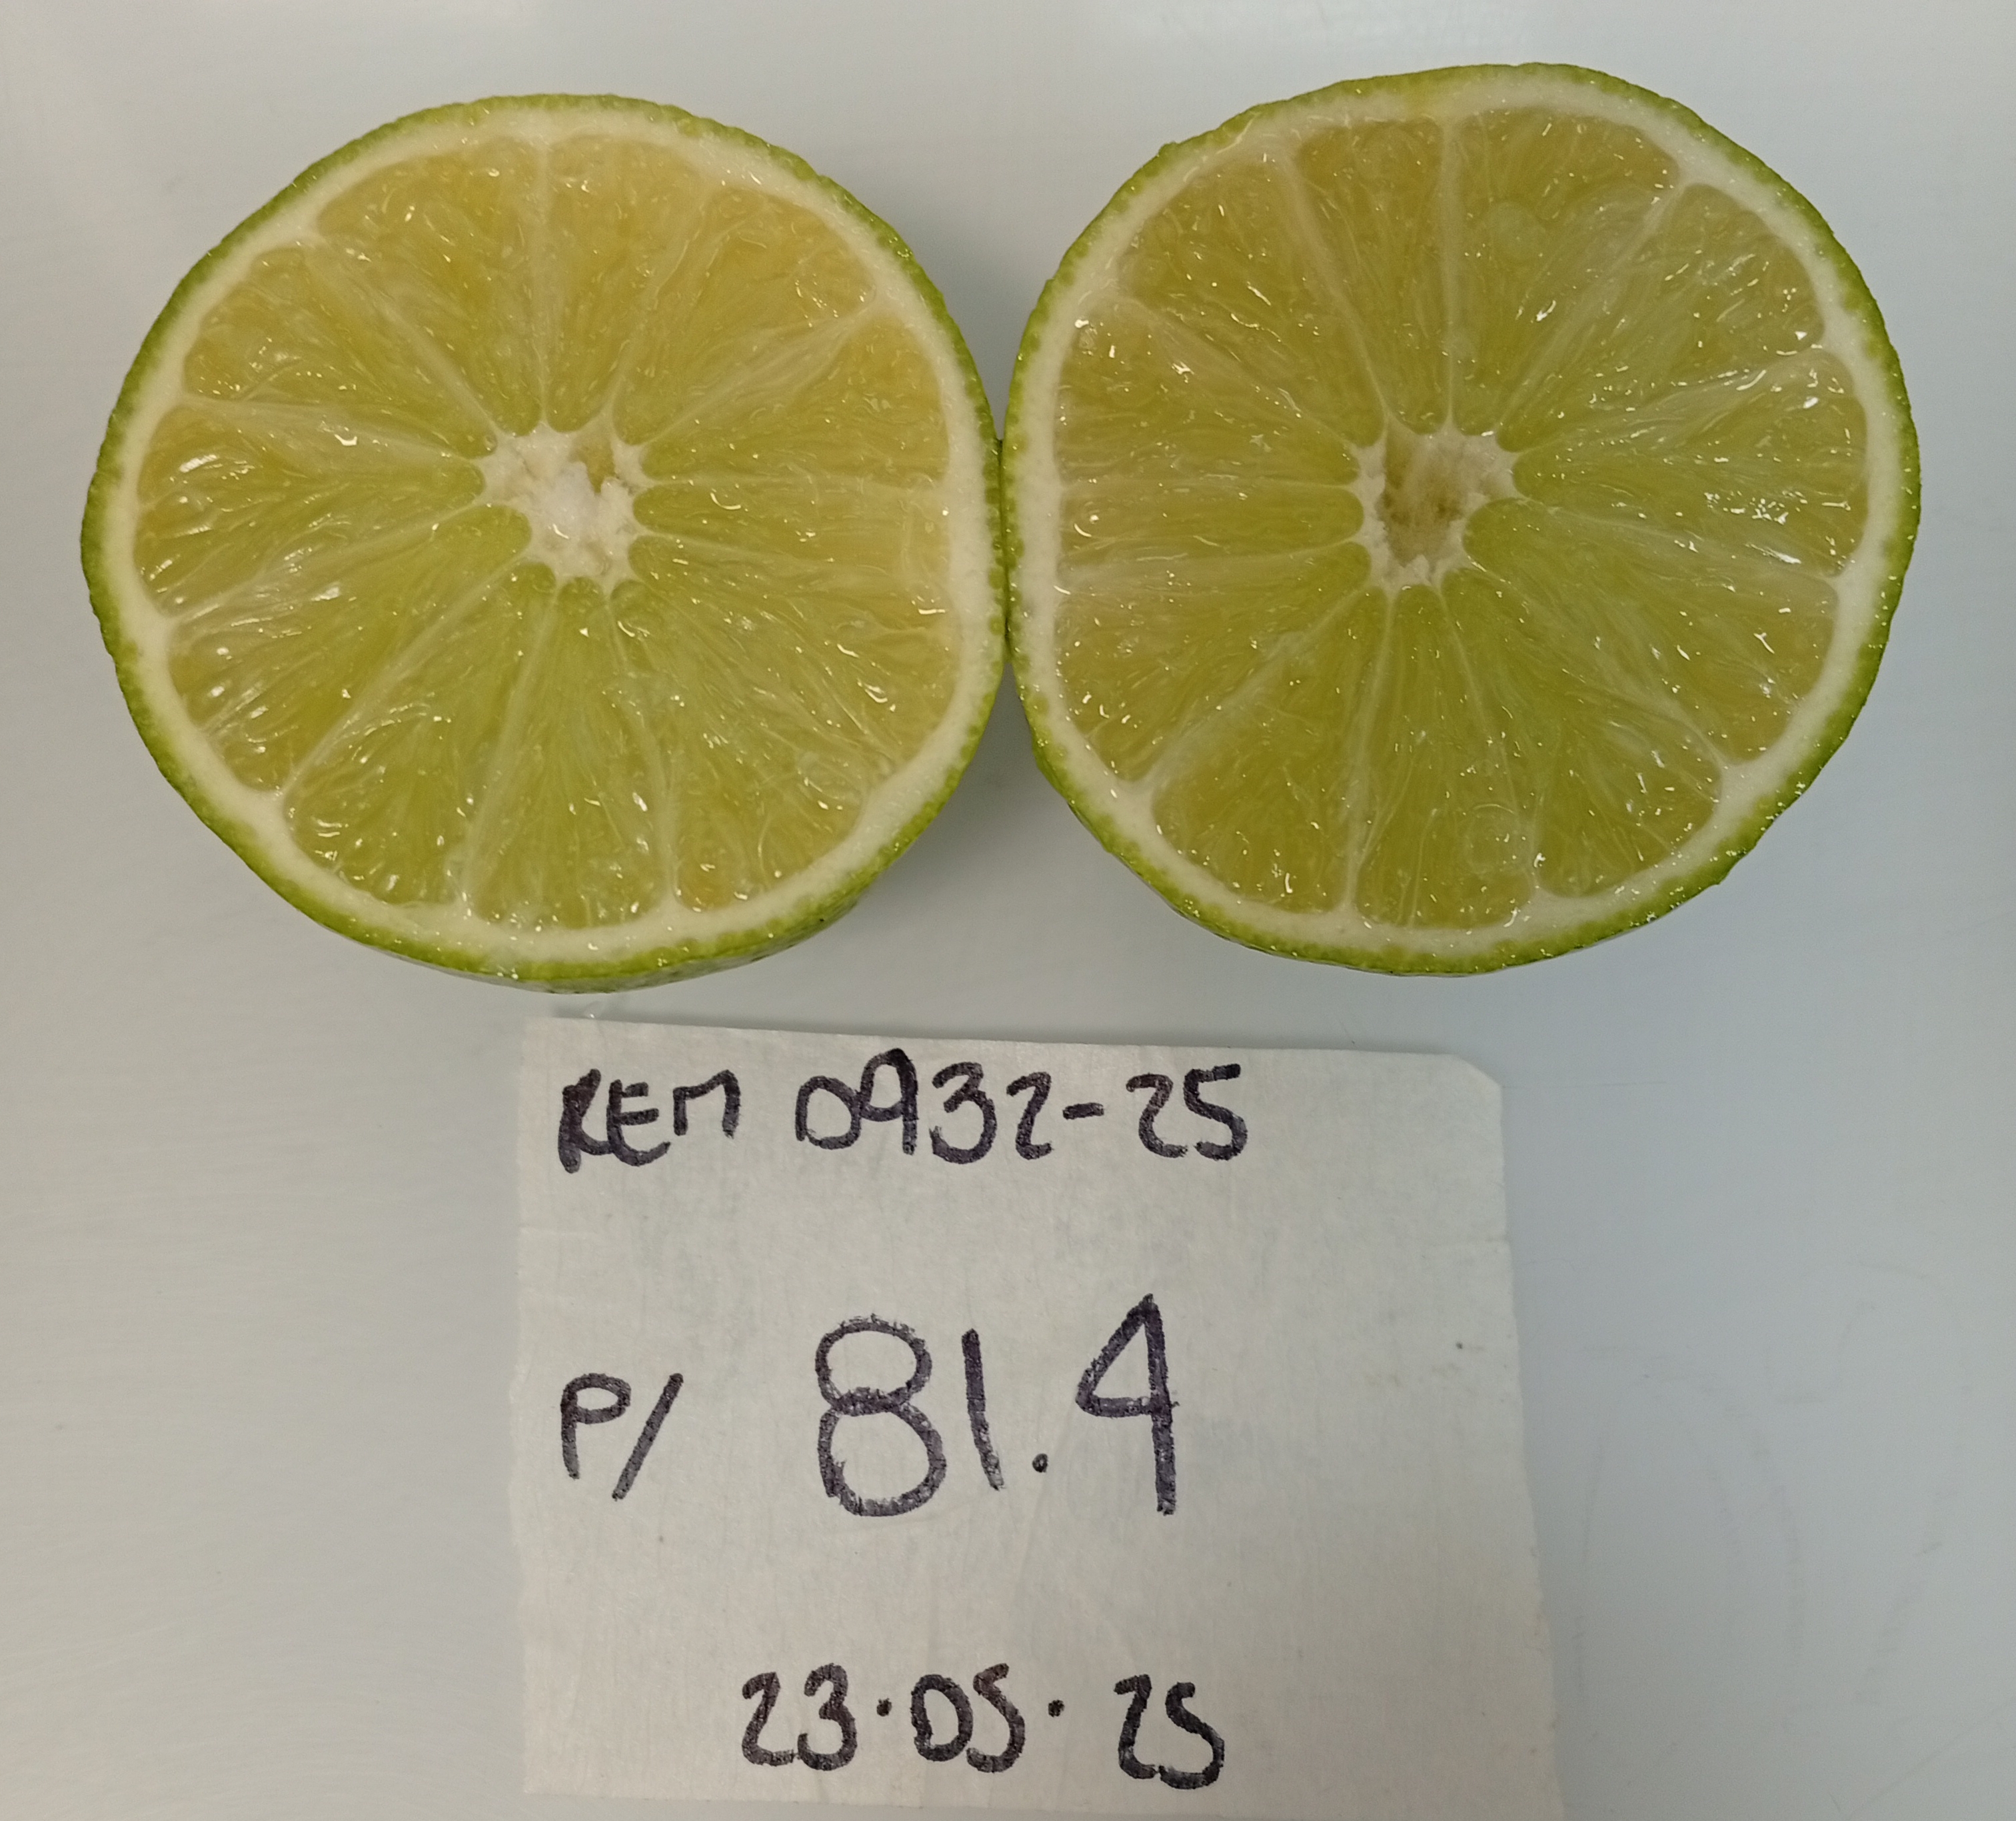 REM 0932-25
P/ 81.4
23.05.25